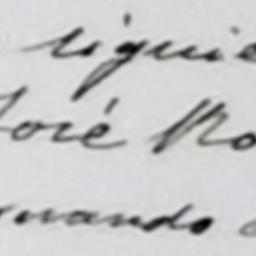 siguie
José Ro
rnando